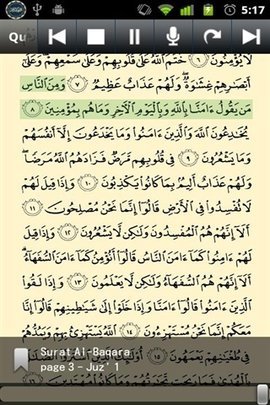 5:17
Qu
لَا يُؤْمِنُونَ ٦ خَتَمَ ٱللَّهُ عَلَىٰ قُلُوبِهِمْ وَعَلَىٰ سَمْعِهِمْ وَعَلَىٰٓ
أَبْصَٰرِهِمْ غِشَٰوَةٌ وَلَهُمْ عَذَابٌ عَظِيمٌ ٧ وَمِنَ ٱلنَّاسِ
مَن يَقُولُ ءَامَنَّا بِٱللَّهِ وَبِٱلْيَوْمِ ٱلْءَاخِرِ وَمَا هُم بِمُؤْمِنِينَ ٨
يُخَٰدِعُونَ ٱللَّهَ وَٱلَّذِينَ ءَامَنُوا۟ وَمَا يَخْدَعُونَ إِلَّآ أَنفُسَهُمْ
وَمَا يَشْعُرُونَ ٩ فِى قُلُوبِهِم مَّرَضٌ فَزَادَهُمُ ٱللَّهُ مَرَضًا
وَلَهُمْ عَذَابٌ أَلِيمٌۢ بِمَا كَانُوا۟ يَكْذِبُونَ ١٠ وَإِذَا قِيلَ لَهُمْ
لَا تُفْسِدُوا۟ فِى ٱلْأَرْضِ قَالُوٓا۟ إِنَّمَا نَحْنُ مُصْلِحُونَ ١١
أَلَآ إِنَّهُمْ هُمُ ٱلْمُفْسِدُونَ وَلَٰكِن لَّا يَشْعُرُونَ ١٢ وَإِذَا قِيلَ
لَهُمْ ءَامِنُوا۟ كَمَآ ءَامَنَ ٱلنَّاسُ قَالُوٓا۟ أَنُؤْمِنُ كَمَآ ءَامَنَ ٱلسُّفَهَآءُ
أَلَآ إِنَّهُمْ هُمُ ٱلسُّفَهَآءُ وَلَٰكِن لَّا يَعْلَمُونَ ١٣ وَإِذَا لَقُوا۟
ٱلَّذِينَ ءَامَنُوا۟ قَالُوٓا۟ ءَامَنَّا وَإِذَا خَلَوْا۟ إِلَىٰ شَيَٰطِينِهِمْ قَالُوٓا۟ إِنَّا
مَعَكُمْ إِنَّمَا نَحْنُ مُسْتَهْزِءُونَ ١٤ ٱللَّهُ يَسْتَهْزِئُ بِهِمْ وَيَمُدُّهُمْ
فِى طُغْيَٰنِهِمْ يَعْمَهُونَ ١٥ أُو۟لَٰٓئِكَ ٱلَّذِينَ ٱشْتَرَوُا۟ ٱلضَّلَٰلَةَ
Surat Al-Baqara
page 3 - Juz' 1